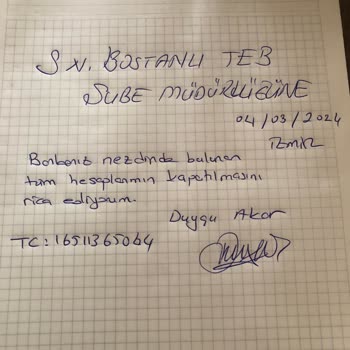 SN. BOSTANLI TEB
ŞUBE MÜDÜRLÜĞÜNE
04/03/2024
İZMİR
Bankanız nezdinde bulunan
tüm hesaplarımın kapatılmasını
rica ediyorum.
Duygu Akar
TC: 16511365064